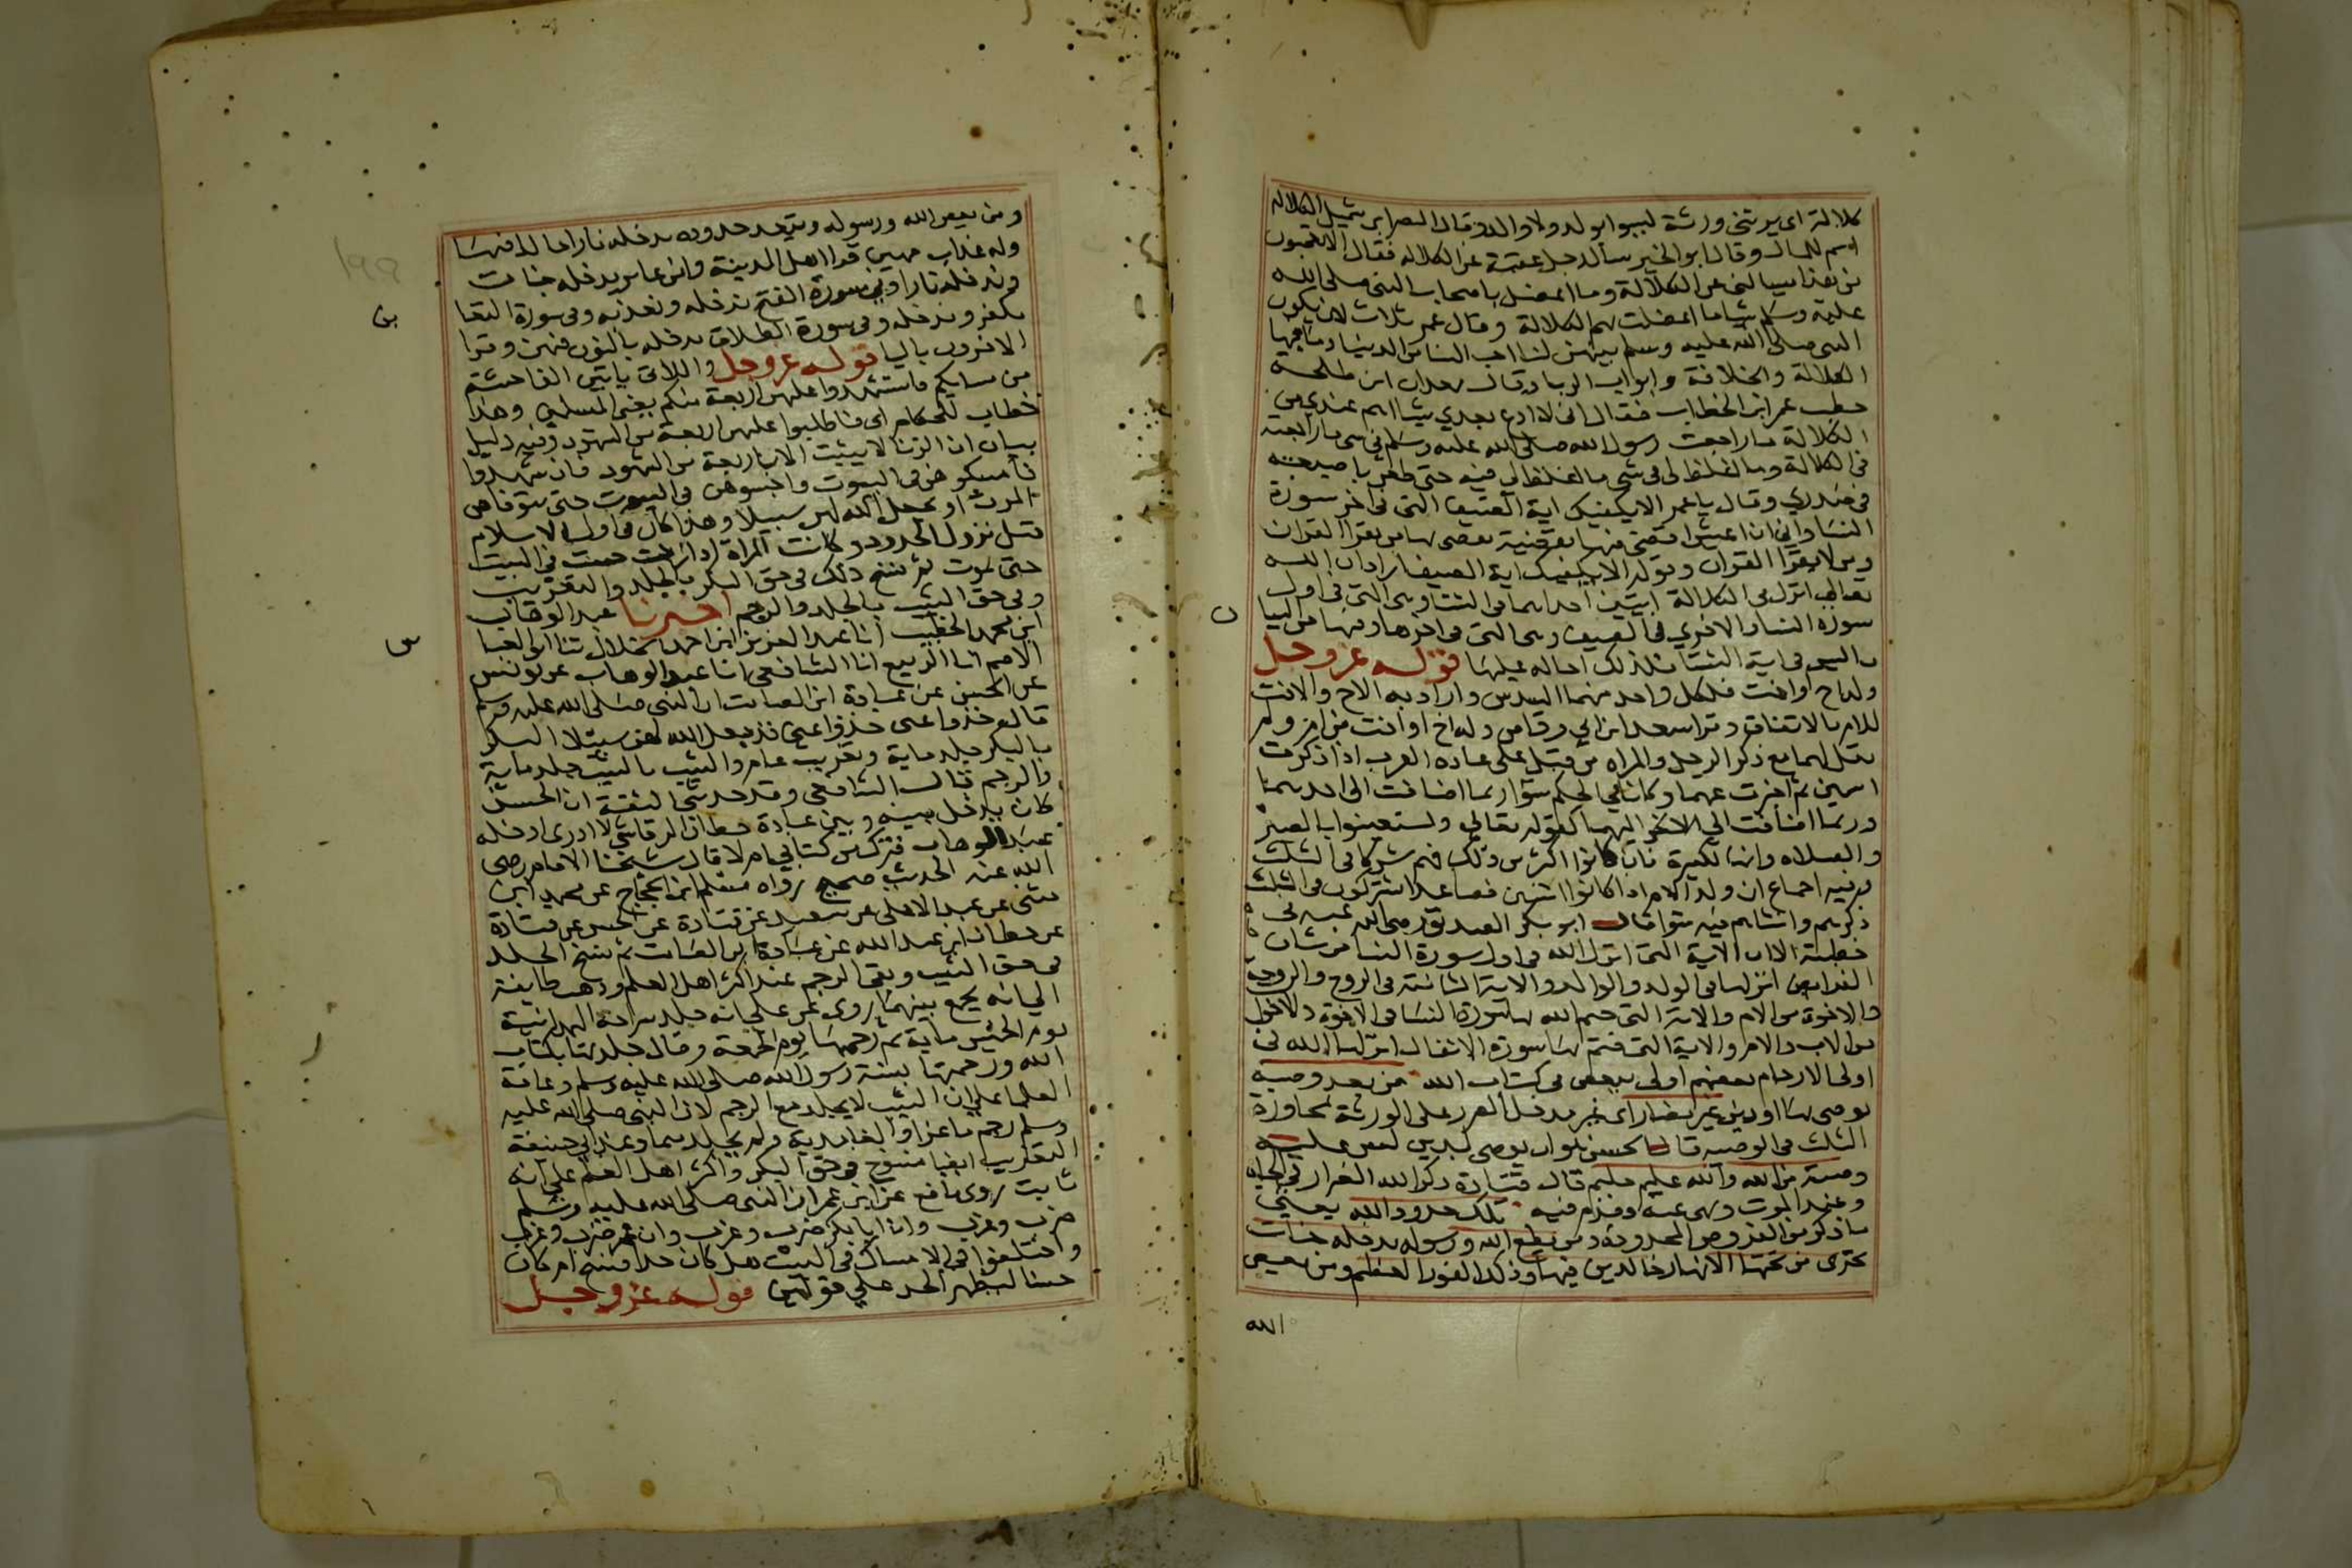 كلالة اى يرثني ورثة ليسوا بولد ولا والد وقال النضر ابن شميل الكلالة
اسم للمال وقال ابو الخير سأل رجل عقبة عن الكلالة فقال الا تعجبون
من هذا يسالني عن الكلالة وما اعضل باصحاب النبي صلى الله
عليه وسلم شيا ما اعضلت بهم الكلالة وقال عمر ثلاث لان يكون
النبي صلى الله عليه وسلم بينهن لنا احب الينا من الدنيا وما فيها
الكلالة والخلافة وابواب الربا وقال معدان ابن طلحة
خطب عمر ابن الخطاب فقال انى لا ادع بعدي شيا اهم عندي من
الكلالة ما راجعت رسول الله صلى الله عليه وسلم في شي ما راجعته
في الكلالة وما اغلظ لي في شي ما اغلظ لي فيه حتى طعن باصبعه
في صدري وقال يا عمر الا يكفيك اية الصيف التي في اخر سورة
النساء واني ان اعش اقضي فيها بقضية يقضي بها من يقرا القران
ومن لا يقرا القران وقوله الا يكفيك اية الصيف اراد ان الله
تعالى انزل في الكلالة ايتين احداهما في الشتاء وهي التي في اول
سورة النساء والاخري في الصيف وهي التي في اخرها وفيها من البيا
ما ليس في اية الشتا فلذلك احاله عليها قوله عز وجل
وله اخ او اخت فلكل واحد منهما السدس واراد به الاخ والاخت
للام بالاتفاق وقرا سعد ابن ابي وقاص وله اخ او اخت من ام ولم
يقل لهما مع ذكر الرجل والمراه من قبل على عادة العرب اذا ذكرت
اسمين ثم اخبرت عنهما وكانا في الحكم سوا ربما اضافت الى احدهما
وربما اضافت الي الاخر اليهما كقوله تعالى واستعينوا بالصبر
والصلاه وانها لكبيرة فان كانوا اكثر من ذلك فهم شركا في الثلث
فيه اجماع ان ولد الام اذا كانوا اثنين فصاعدا اشتركون في الثلث
ذكرهم وانثاهم فيه سوا قال ابو بكر الصديق رضي الله عنه في
خطبته الا ان الاية التي انزل الله في اول سورة النسا من شان
الفرايض انزلها في الولد والوالد والاية الثانية في الزوج والزوجة
والاخوة من الام والاية التي ختم الله بها سورة النسا في الاخوة والاخوا
من الاب والام والاية التي ختم بها سورة الانفال انزلها الله في
اولى الارحام بعضهم اولى ببعض في كتاب الله من بعد وصية
يوصى بها او دين غير مضار اى غير مدخل الضرر على الورثة بمجاوزة
الثلث في الوصية قال الحسن هو ان يوصى بدين ليس عليه
وصية من الله والله عليم حليم قال قتادة ذكر الله الضرار في الحياة
وعند الموت ونهى عنه وقدم فيه تلك حدود الله يعني
ما ذكر من الفروض المحدودة ومن يطع الله ورسوله يدخله جنات
تجرى من تحتها الانهار خالدين فيها وذلك الفوز العظيم ومن يعص
الله
ن
ومن يعص الله ورسوله ويتعد حدوده يدخله نارا خالدا فيها
وله عذاب مهين قرا اهل المدينة وابن عامر ندخله جنات
وندخله نارا وفي سورة الفتح ندخله ونعذبه وفي سورة التغا
نكفر وندخله وفي سورة الطلاق ندخله بالنون فيهن وقرا
الاخرون باليا قوله عز وجل واللاتي ياتين الفاحشة
من نسايكم فاستشهدوا عليهن اربعة منكم يعنى المسلمين وهذا
خطاب للحكام اى فاطلبوا عليهن اربعة من الشهود وفيه دليل
بيان ان الزنا لا يثبت الا باربعة من الشهود فان شهدوا
فامسكوهن في البيوت واحبسوهن في البيوت حتى يتوفاهن
الموت او يجعل الله لهن سبيلا وهذا كان في اول الاسلام
قبل نزول الحدود وكانت المراة اذا زنت حبست في البيت
حتى تموت ثم نسخ ذلك في حق البكر بالجلد والتغريب
وفي حق الثيب بالجلد والرجم اخبرنا عبد الوهاب
ابن محمد الخطيب انا عبد العزيز ابن احمد الخلال ثنا ابو العبا
الاصم انا الربيع انا الشافعي انا عبد الوهاب عن يونس
عن الحسن عن عبادة ابن الصامت ان النبي صلى الله عليه وسلم
قال خذوا عني خذوا عني قد جعل الله لهن سبيلا البكر
بالبكر جلد ماية وتغريب عام والثيب بالثيب جلد ماية
والرجم قال الشافعي وقد حدثني الثقة ان الحسن
كان يدخل بينه وبين عبادة حطان الرقاشي لا ادرى ادخله
عبد الوهاب فترك من كتابي ام لا قال شيخنا الامام رضى
الله عنه الحديث صحيح رواه مسلم ابن الحجاج عن محمد ابن
مثنى عن عبد الاعلى عن سعيد عن قتادة عن الحسن عن قتادة
عن حطان ابن عبد الله عن عبادة ابن الصامت ثم نسخ الجلد
في حق الثيب وبقي الرجم عند اكثر اهل العلم وذهب طايفة
الي انه يجمع بينهما روى عن علي انه جلد شراحة الهمدانية
يوم الخميس ماية ثم رجمها يوم الجمعة وقال جلدتها بكتاب
الله ورجمتها بسنة رسول الله صلى الله عليه وسلم وعامة
العلما على ان الثيب لا يجلد مع الرجم لان النبي صلى الله عليه
وسلم رجم ماعزا والغامدية ولم يجلدهما وعند ابي حنيفة
التغريب ايضا منسوخ في حق البكر واكثر اهل العلم على انه
ثابت روى نافع عن ابن عمر ان النبي صلى الله عليه وسلم
ضرب وغرب وان ابا بكر ضرب وغرب وان عمر ضرب وغرب
واختلفوا في الامساك في البيت هل كان حدا فنسخ ام كان
حبسا ليظهر الحد علي قولين قوله عز وجل